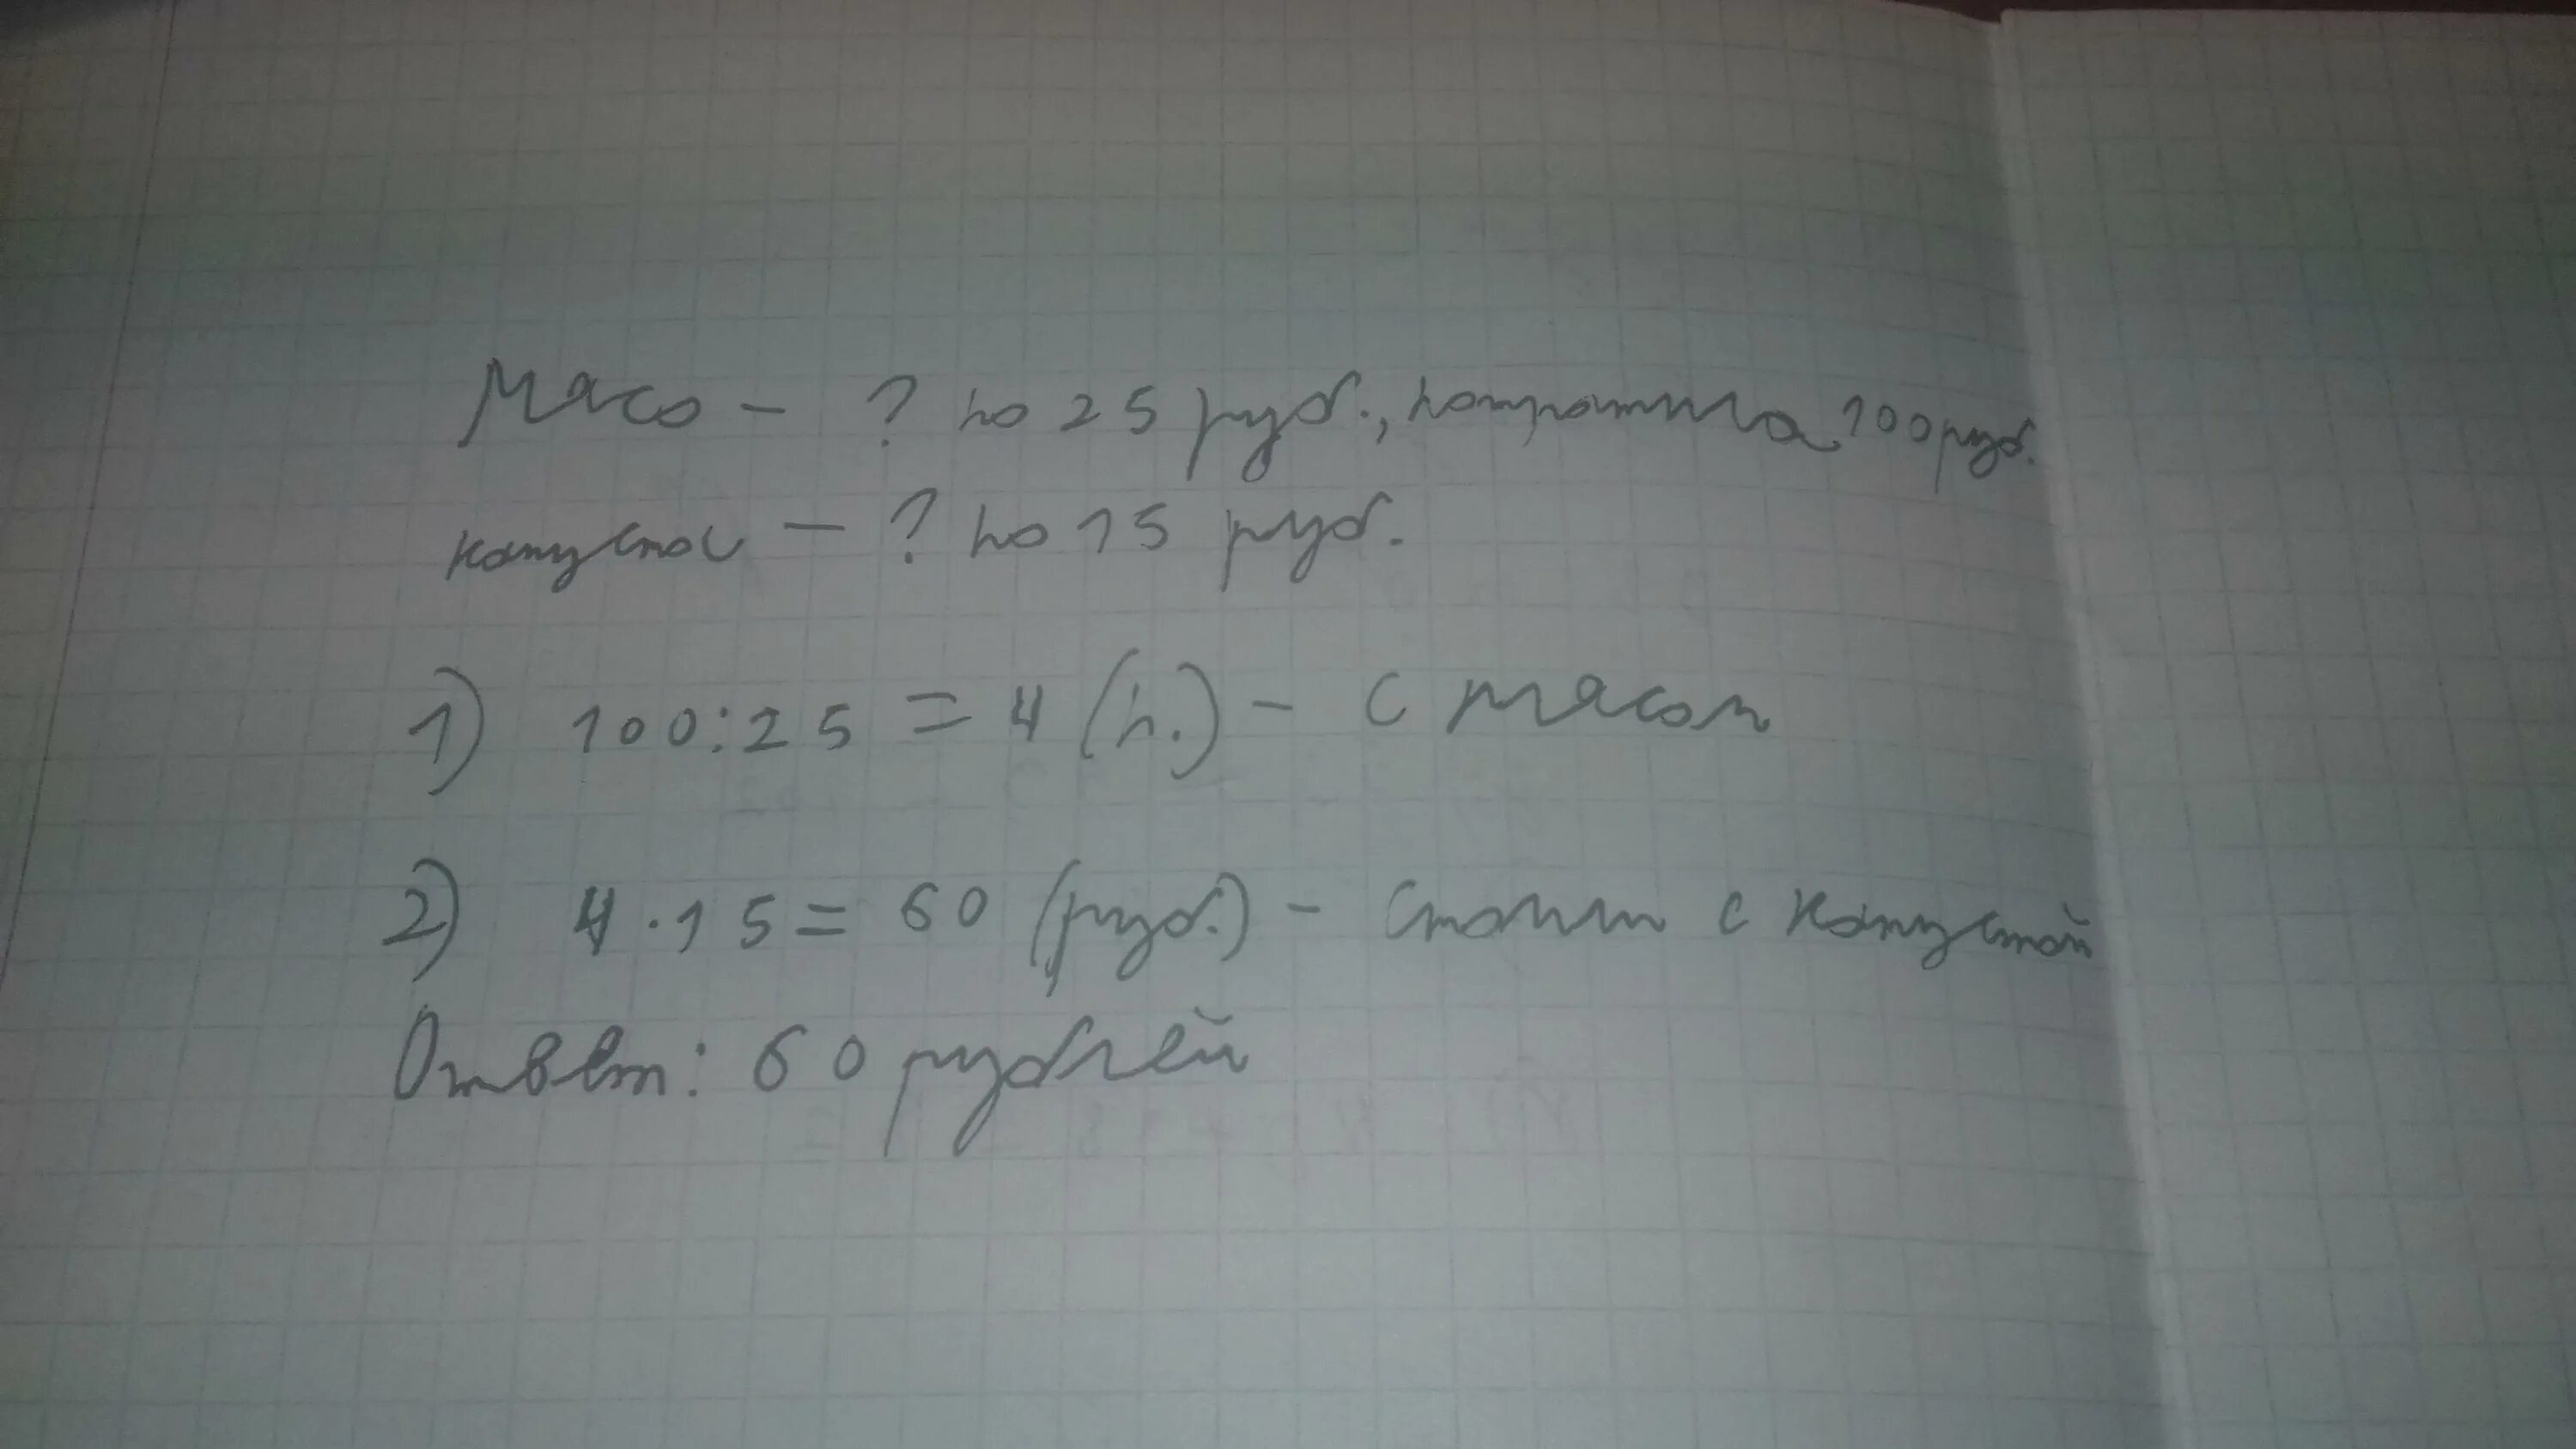 Мясо - ? по 25 руб., потратила 100 руб.
капуста - ? по 15 руб.
1) 100:25 = 4 (п.) - с мясом
2) 4·15 = 60 (руб.) - стоит с капустой
Ответ: 60 рублей